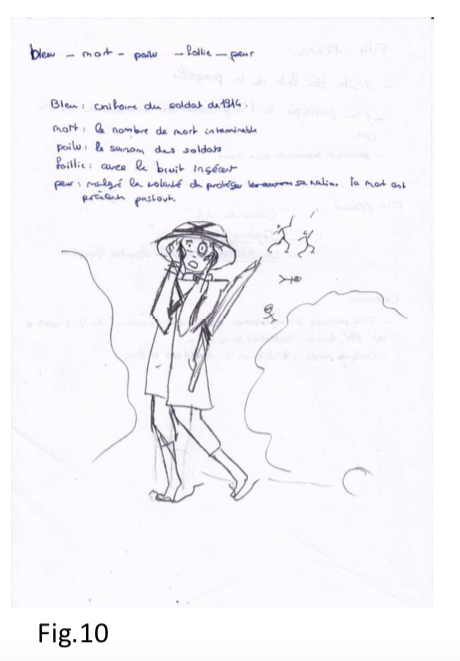 bleu – mort – poilu – follie – peur
Bleu : uniforme du soldat de 1914.
mort : le nombre de mort interminable
poilu : le surnom des soldats
follie : avec le bruit incésant
peur : malgré la volonté de protéger sa nation. la mort est
présente partout.
Fig.10